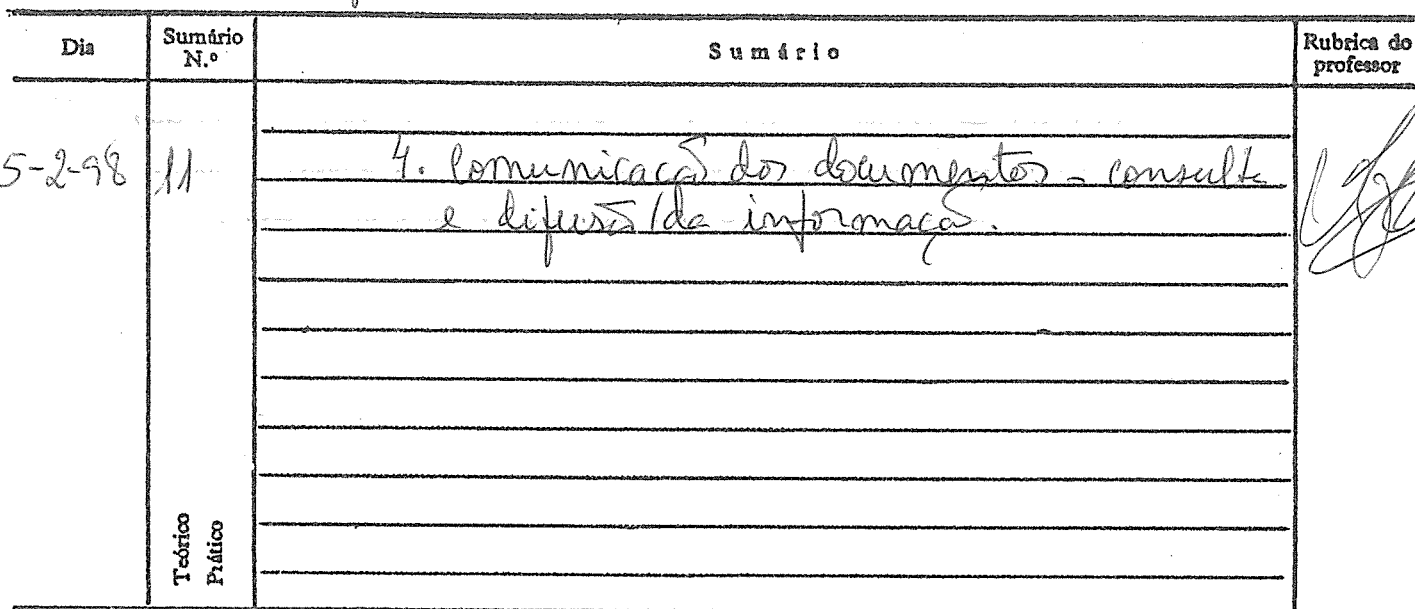 Dia
Sumário N.º
Sumário
Rubrica do professor
5-2-98
11
4. Comunicação dos documentos - consulta
e difusão da informação.
Teórico
Prático